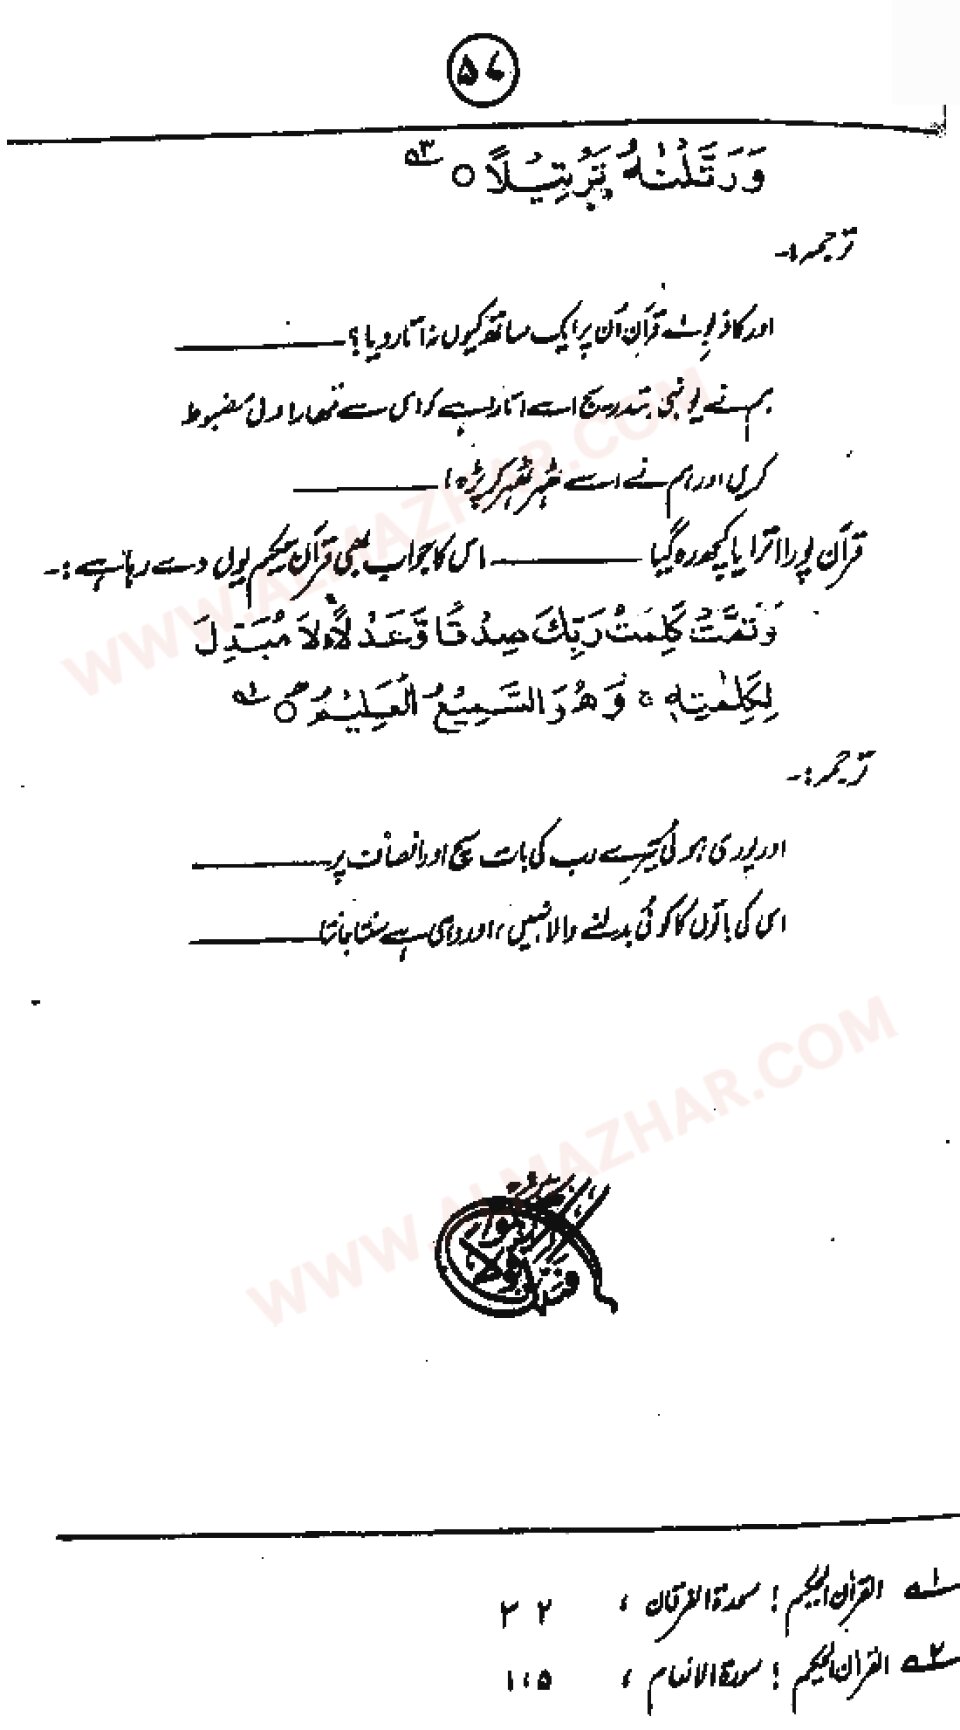 ۵۷
وَرَتَّلْنٰهُ تَرْتِيْلًا ○ ۵۳
ترجمہ :۔
اور کافر بولے قرآن اُن پر ایک ساتھ کیوں نہ اتار دیا ؟ ــــــــ
ہم نے یونہی بتدریج اسے اتارا ہے کہ اس سے تمھارا دل مضبوط
کریں اور ہم نے اسے ٹھہر ٹھہر کر پڑھا ــــــــ
قرآن پورا اترا یا کچھ رہ گیا ــــــــ اس کا جواب بھی قرآن حکیم یوں دے رہا ہے :۔
وَتَمَّتْ كَلِمَتُ رَبِّكَ صِدْقًا وَّعَدْلًا ؕ لَا مُبَدِّلَ
لِكَلِمٰتِهٖ ۚ وَهُوَ السَّمِيْعُ الْعَلِيْمُ ○
ترجمہ :۔
اور پوری ہوئی تیرے رب کی بات سچ اور انصاف پر ــــــــ
اس کی باتوں کا کوئی بدلنے والا نہیں ، اور وہی ہے سنتا جانتا ــــــــ
WWW.ALMAZHAR.COM
WWW.ALMAZHAR.COM
۱؎ القرآن الحکیم ؛ سورۃ الفرقان ، ۳۲
۲؎ القرآن الحکیم ؛ سورۃ الانعام ، ۱۱۵